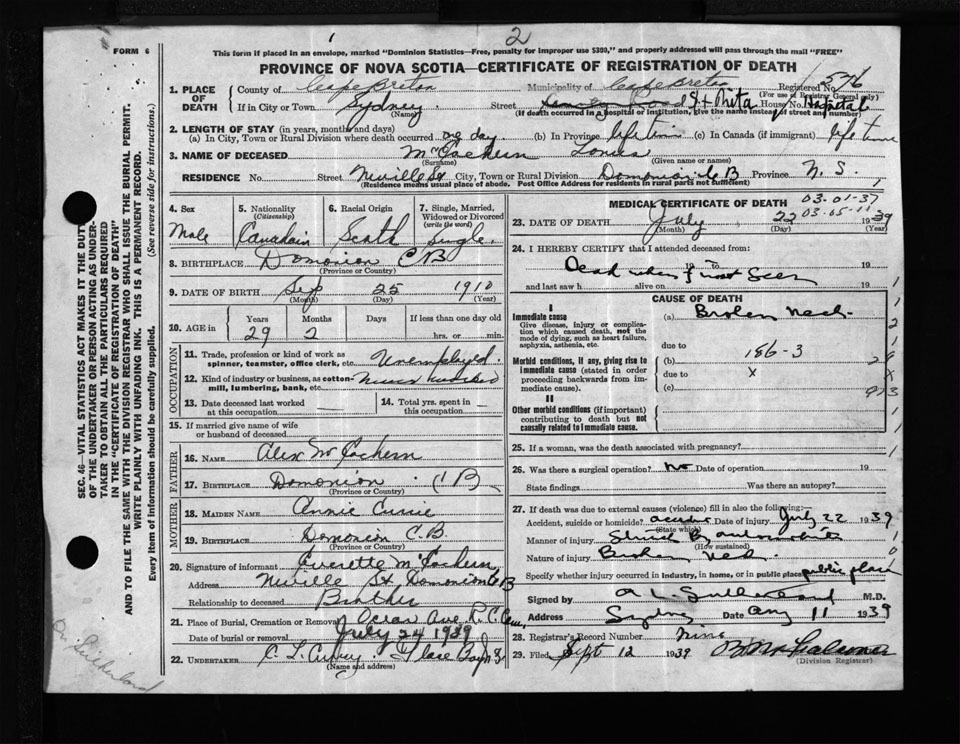 2
FORM 6
This form if placed in an envelope, marked "Dominion Statistics—Free, penalty for improper use $300," and properly addressed will pass through the mail "FREE"
PROVINCE OF NOVA SCOTIA—CERTIFICATE OF REGISTRATION OF DEATH
1. PLACE OF DEATH County of Cape Breton Municipality of Cape Breton Registered No. 576
(For use of Registrar General only)
If in City or Town Sydney Street St Rita House No. Hospital
(Name) (If death occurred in hospital or institution, give the name instead of street and number)
2. LENGTH OF STAY (in years, months and days)
(a) In City, Town or Rural Division where death occurred one day. (b) In Province life time (c) In Canada (if immigrant) life time
3. NAME OF DECEASED McEachern
(Surname) (Given name or names)
RESIDENCE No. Street Neville St City, Town or Rural Division Domonion C B Province N. S.
(Residence means usual place of abode. Post Office Address for residents in rural parts not sufficient)
4. Sex Male
5. Nationality (Citizenship) Canadain
6. Racial Origin Scoth
7. Single, Married, Widowed or Divorced (write the word) Single.
8. BIRTHPLACE Domonion C B
(Province or Country)
9. DATE OF BIRTH Sep 25 1910
(Month) (Day) (Year)
10. AGE in Years 29 Months 2 Days If less than one day old hrs. or min.
OCCUPATION
11. Trade, profession or kind of work as spinner, teamster, office clerk, etc. Unemployed.
12. Kind of industry or business, as cotton-mill, lumbering, bank, etc. Never worked
13. Date deceased last worked at this occupation
14. Total yrs. spent in this occupation
15. If married give name of wife or husband of deceased
FATHER
16. NAME Alex McEachern
17. BIRTHPLACE Domonion C B
(Province or Country)
MOTHER
18. MAIDEN NAME Annie Currie
19. BIRTHPLACE Domonion C.B.
(Province or Country)
20. Signature of informant Everette McEachern
Address Neville St, Domonion C B
Relationship to deceased Brother
21. Place of Burial, Cremation or Removal Ocean Ave R.C. Cem,
Date of burial or removal July 24 1939
22. UNDERTAKER C. L. Curry. Glace Bay N S
(Name and address)
MEDICAL CERTIFICATE OF DEATH
03-01-37
03-05-11
23. DATE OF DEATH July 22 1939
(Month) (Day) (Year)
24. I HEREBY CERTIFY that I attended deceased from:
19 to 19
Dead when first seen
and last saw h alive on 19
CAUSE OF DEATH
I
Immediate cause
Give disease, injury or complication which caused death, not the mode of dying, such as heart failure, asphyxia, asthenia, etc.
(a) Broken neck.
due to
Morbid conditions, if any, giving rise to immediate cause (stated in order proceeding backwards from immediate cause).
(b) 186-3
due to X
(c)
II
Other morbid conditions (if important) contributing to death but not causally related to immediate cause.
25. If a woman, was the death associated with pregnancy?
26. Was there a surgical operation? No Date of operation 19
State findings Was there an autopsy?
27. If death was due to external causes (violence) fill in also the following:—
Accident, suicide or homicide? accident Date of injury July 22 1939
(State which)
Manner of injury Struck By automobile
(How sustained)
Nature of injury Broken neck.
Specify whether injury occurred in industry, in home, or in public place public place
Signed by M.D.
Address Sydney Date Aug 11 1939
28. Registrar's Record Number Nine
29. Filed Sept 12 1939
(Division Registrar)
SEC. 46—VITAL STATISTICS ACT MAKES IT THE DUTY OF THE UNDERTAKER OR PERSON ACTING AS UNDERTAKER TO OBTAIN ALL THE PARTICULARS REQUIRED IN THE "CERTIFICATE OF REGISTRATION OF DEATH" AND TO FILE THE SAME WITH THE DIVISION REGISTRAR WHO SHALL ISSUE THE BURIAL PERMIT.
WRITE PLAINLY WITH UNFADING INK. THIS IS A PERMANENT RECORD.
Every item of information should be carefully supplied. (See reverse side for instructions.)